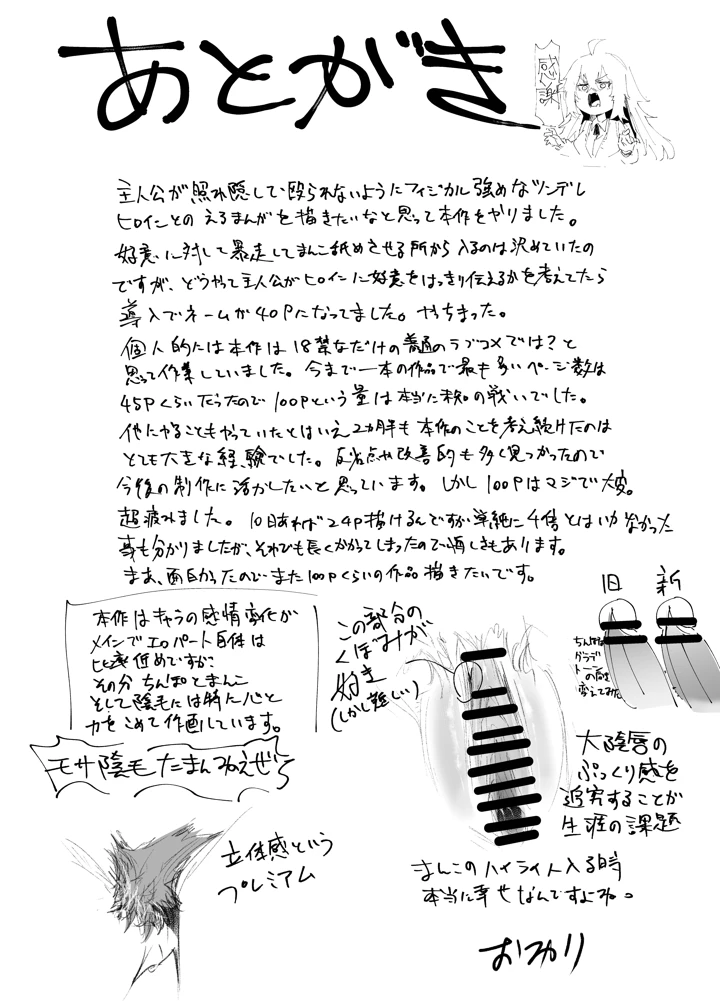 あとがき
感謝
主人公が照れ隠しで殴られないようにフィジカル強めなツンデレ
ヒロインとのえろまんがを描きたいなと思って本作をやりました。
好意に対して暴走してまんこ舐めさせる所から入るのは決めていたの
ですが、どうやって主人公がヒロインに好意をはっきり伝えるかを考えてたら
導入でネームが40Pになってました。やっちまった。
個人的には本作は18禁なだけの普通のラブコメでは?と
思って作業していました。今まで一本の作品で最も多いページ数は
45Pくらいだったので100Pという量は本当に未知の戦いでした。
他にやることもやっていたとはいえ2カ月半も本作のことを考え続けたのは
とても大きな経験でした。反省点や改善的も多く見つかったので
今後の制作に活かしたいと思っています。しかし100Pはマジで大変。
超疲れました。10日あれば24P描けるんですが単純に4倍とはいかなかった
事も分かりましたが、それでも長くかかってしまったので悔しさもあります。
まあ、面白かったのでまた100Pくらいの作品描きたいです。
本作はキャラの感情変化が
メインでエロパート自体は
比率低めですが
その分ちんぽとまんこ
そして陰毛には特に心と
力をこめて作画しています。
モサ陰毛たまんねえぜ
立体感という
プレミアム
この部分の
くぼみが
好き
(しかし難しい)
旧 新
ちんぽは
グラデ
トーン
の向き
変えてみた
大陰唇の
ぷっくり感を
追究することが
生涯の課題
まんこのハイライト入る時
本当に幸せなんですよね。
おつかり